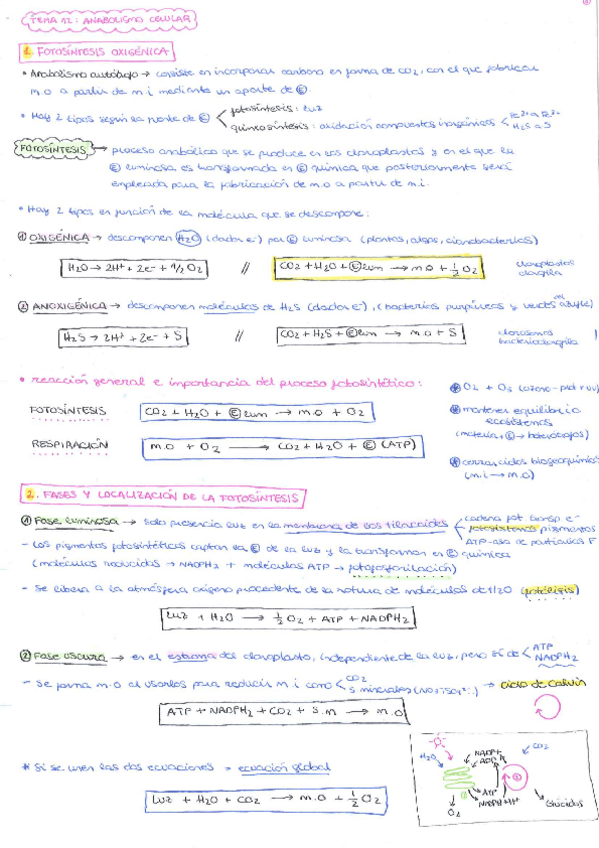 TEMA 12: ANABOLISMO CELULAR
1. FOTOSÍNTESIS OXIGÉNICA
• Anabolismo autótrofo → consiste en incorporar carbono en forma de CO2, con el que fabrican
m.o a partir de m.i mediante un aporte de E.
• Hay 2 tipos según la fuente de E < fotosíntesis: luz
quimiosíntesis: oxidación compuestos inorgánicos < Fe2+ a Fe3+
H2S a S
FOTOSÍNTESIS → proceso anabólico que se produce en los cloroplastos y en el que la
E luminosa es transformada en E química que posteriormente será
empleada para la fabricación de m.o a partir de m.i.
• Hay 2 tipos en función de la molécula que se descompone:
1 OXIGÉNICA → descomponen H2O (dador e-) por E luminosa (plantas, algas, cianobacterias)
H2O → 2H+ + 2e- + 1/2 O2 // CO2 + H2O + E lum → m.o + 1/2 O2 cloroplastos
clorofila
2 ANOXIGÉNICA → descomponen moléculas de H2S (dador e-), (bacterias purpúreas y verdes del azufre)
H2S → 2H+ + 2e- + S // CO2 + H2S + E lum → m.o + S clorosomas
bacterioclorofila
• reacción general e importancia del proceso fotosintético:
FOTOSÍNTESIS CO2 + H2O + E lum → m.o + O2
RESPIRACIÓN m.o + O2 → CO2 + H2O + E (ATP)
* O2 + O3 (ozono - prot r uv)
* mantener equilibrio
ecosistemas
(materia y E → heterótrofos)
* cerrar ciclos biogeoquímicos
(m.i → m.o)
2. FASES Y LOCALIZACIÓN DE LA FOTOSÍNTESIS
1 Fase luminosa → solo presencia luz en la membrana de los tilacoides < cadena fot transp e-
fotosistemas pigmentos
ATP-asa de partículas F
- Los pigmentos fotosintéticos captan la E de la luz y la transforman en E química
(moléculas reducidas → NADPH2 + moléculas ATP → fotofosforilación)
- Se libera a la atmósfera oxígeno procedente de la rotura de moléculas de H2O (fotólisis)
Luz + H2O → 1/2 O2 + ATP + NADPH2
2 Fase oscura → en el estroma del cloroplasto, independiente de la luz, pero sí de < ATP
NADPH2
- Se forma m.o al usarlos para reducir m.i como < CO2
S minerales (NO3-, SO4 2-...) → ciclo de Calvin
ATP + NADPH2 + CO2 + S.M → m.o
* Si se unen las dos ecuaciones = ecuación global
Luz + H2O + CO2 → m.O + 1/2 O2
H2O
NADP+
ADP
CO2
ATP
NADPH+H+
O2
Glúcidos